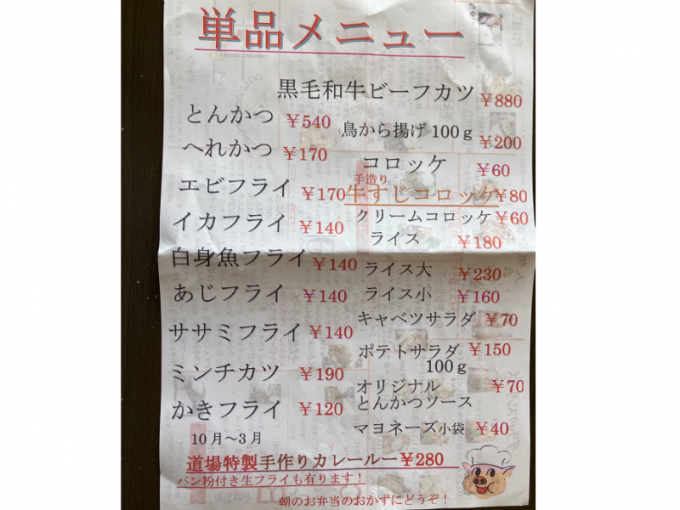 単品メニュー
黒毛和牛ビーフカツ ￥880
とんかつ ￥540
鳥から揚げ100ｇ ￥200
へれかつ ￥170
コロッケ ￥60
エビフライ ￥170
手造り
牛すじコロッケ ￥80
イカフライ ￥140
クリームコロッケ ￥60
ライス ￥180
白身魚フライ ￥140
ライス大 ￥230
あじフライ ￥140
ライス小 ￥160
ササミフライ ￥140
キャベツサラダ ￥70
ポテトサラダ ￥150
100ｇ
ミンチカツ ￥190
オリジナル ￥70
とんかつソース
かきフライ ￥120
マヨネーズ小袋 ￥40
10月～3月
道場特製手作りカレールー￥280
パン粉付き生フライも有ります！
朝のお弁当のおかずにどうぞ！